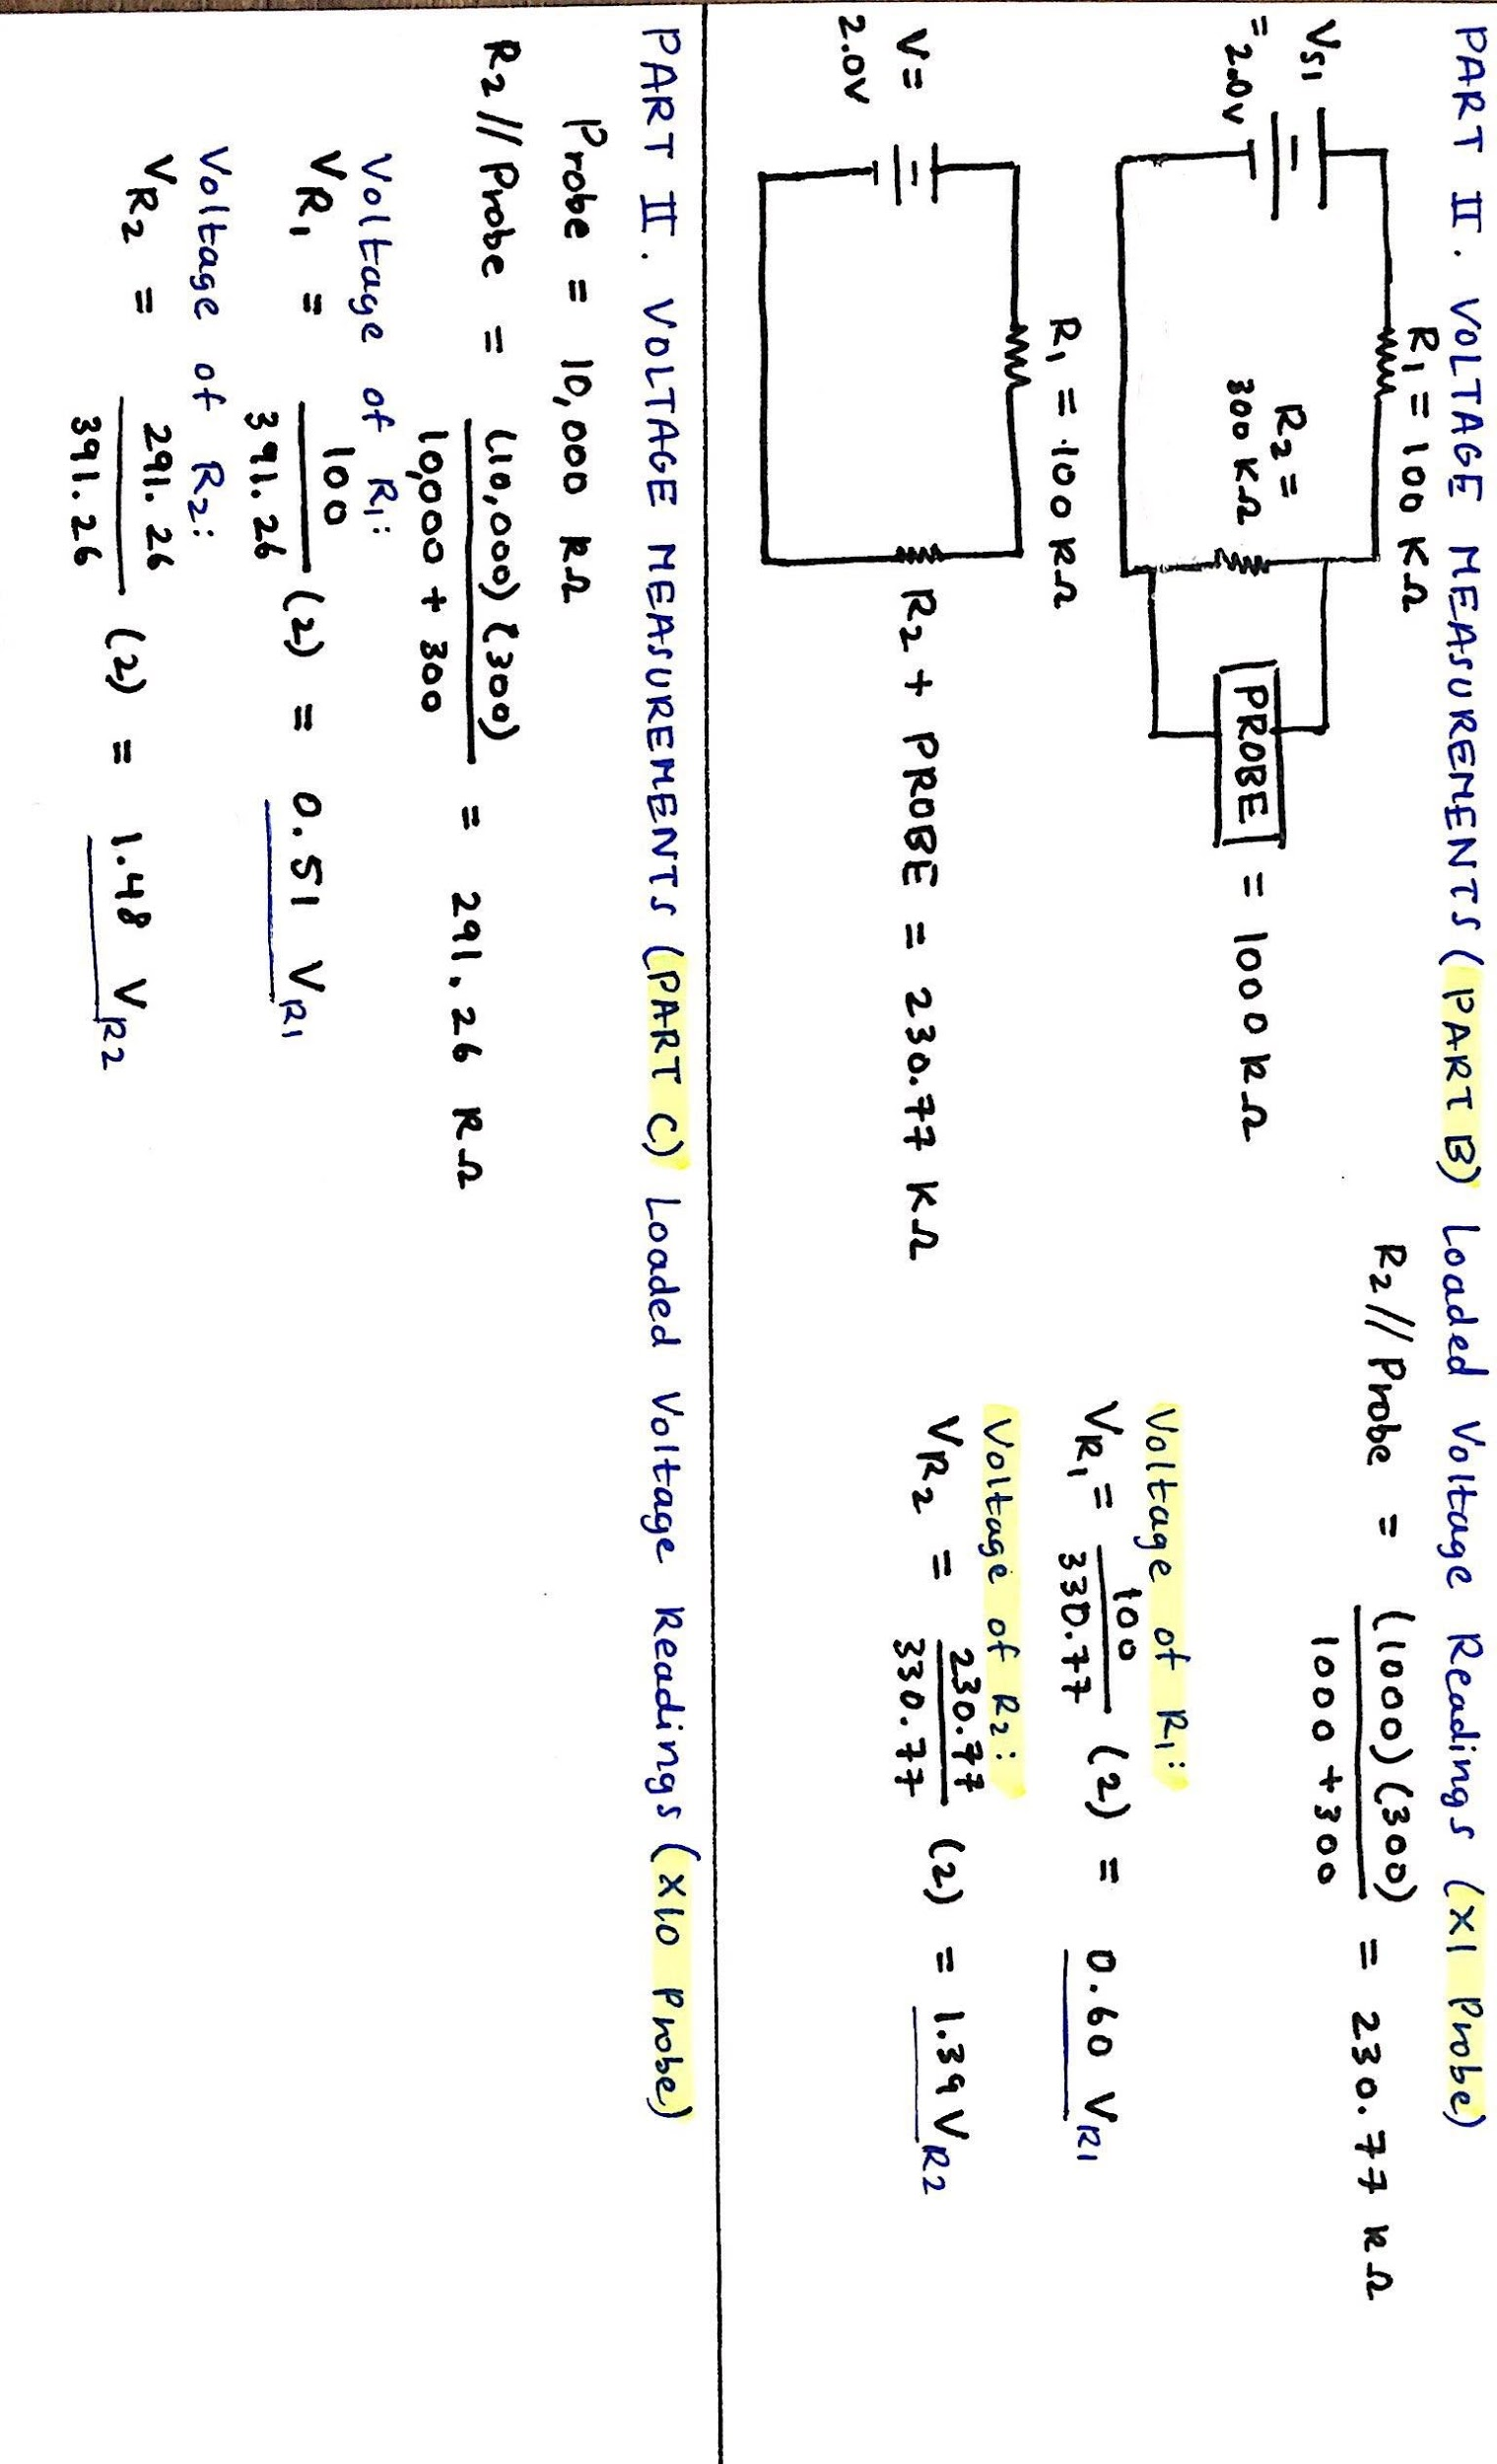 PART II. VOLTAGE MEASUREMENTS (PART B) Loaded Voltage Readings (X1 Probe)
R1 = 100 KΩ
VS1 = 2.0V
R2 = 300 KΩ
PROBE = 1000 kΩ
R2 // Probe = (1000)(300) / 1000 + 300 = 230.77 kΩ
R1 = 100 kΩ
V = 2.0V
R2 + PROBE = 230.77 KΩ
Voltage of R1:
VR1 = 100 / 330.77 (2) = 0.60 VR1
Voltage of R2:
VR2 = 230.77 / 330.77 (2) = 1.39 VR2
PART II. VOLTAGE MEASUREMENTS (PART C) Loaded Voltage Readings (X10 Probe)
Probe = 10,000 kΩ
R2 // Probe = (10,000)(300) / 10,000 + 300 = 291.26 kΩ
Voltage of R1:
VR1 = 100 / 391.26 (2) = 0.51 VR1
Voltage of R2:
VR2 = 291.26 / 391.26 (2) = 1.48 VR2